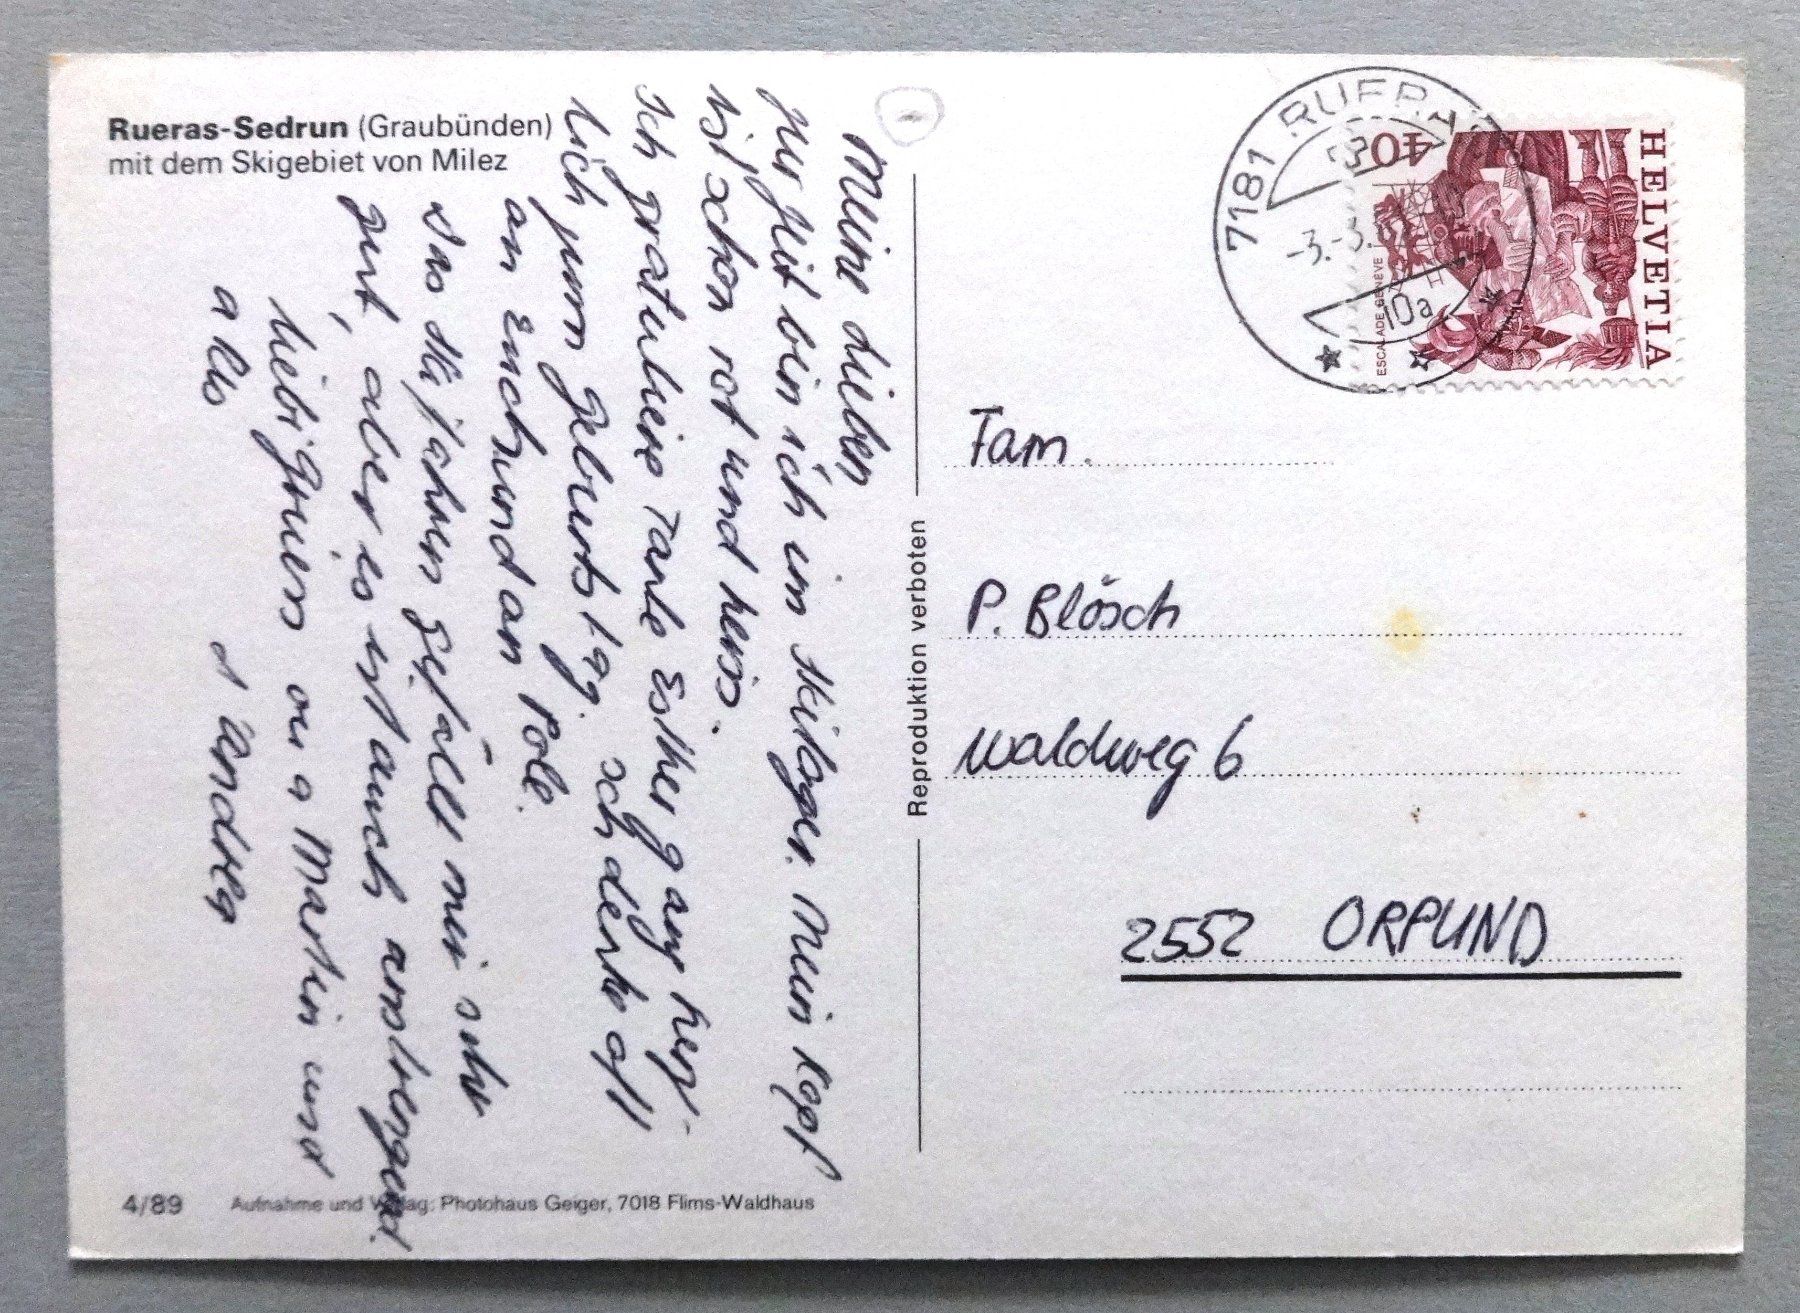 Rueras-Sedrun (Graubünden)
mit dem Skigebiet von Milez
Meine Lieben
Zur Zeit bin ich im Skilager. Mein Kopf
ist schon rot und heiss.
Ich gratuliere Tante Esther ganz herz-
lich zum Geburtstag. Ich denke oft
an Euch und an Pole.
Das Skifahren gefällt mir sehr
gut, aber es ist auch anstrengend.
Liebi Grüess au a Martin und
a Klo
d'Andrea
Reproduktion verboten
4/89 Aufnahme und Verlag: Photohaus Geiger, 7018 Flims-Waldhaus
7181 RUERAS
-3.-3.
10a
HELVETIA
40
ESCALADE GENÈVE
Fam.
P. Blösch
Waldweg 6
2552 ORPUND